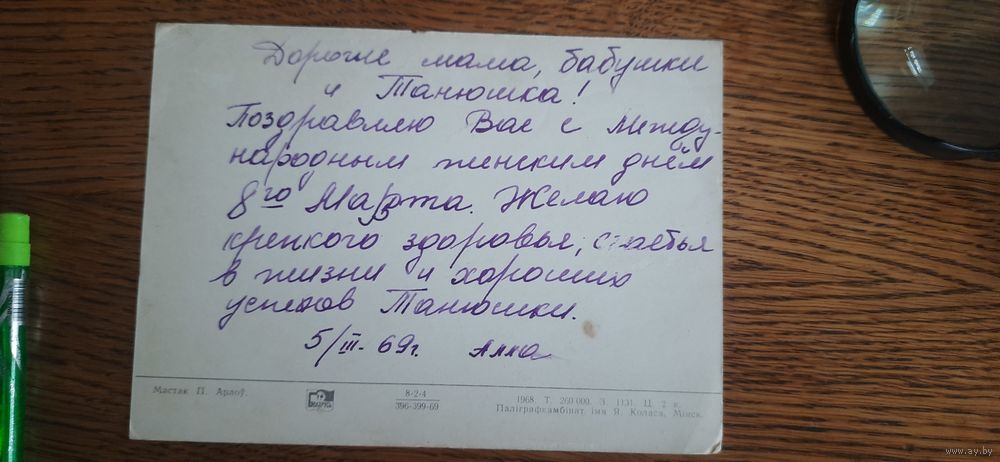 Дорогие мама, бабушки
и Танюшка!
Поздравляю Вас с между-
народным женским днём
8го Марта. Желаю
крепкого здоровья, счастья
в жизни и хороших
успехов Танюшки.
5/III-69г. Алла
Мастак П. Арлоў.
8-2-4
396-399-69
1968. Т. 260 000. З. 1131. Ц. 2 к.
Паліграфкамбінат імя Я. Коласа, Мінск.
www.ay.by